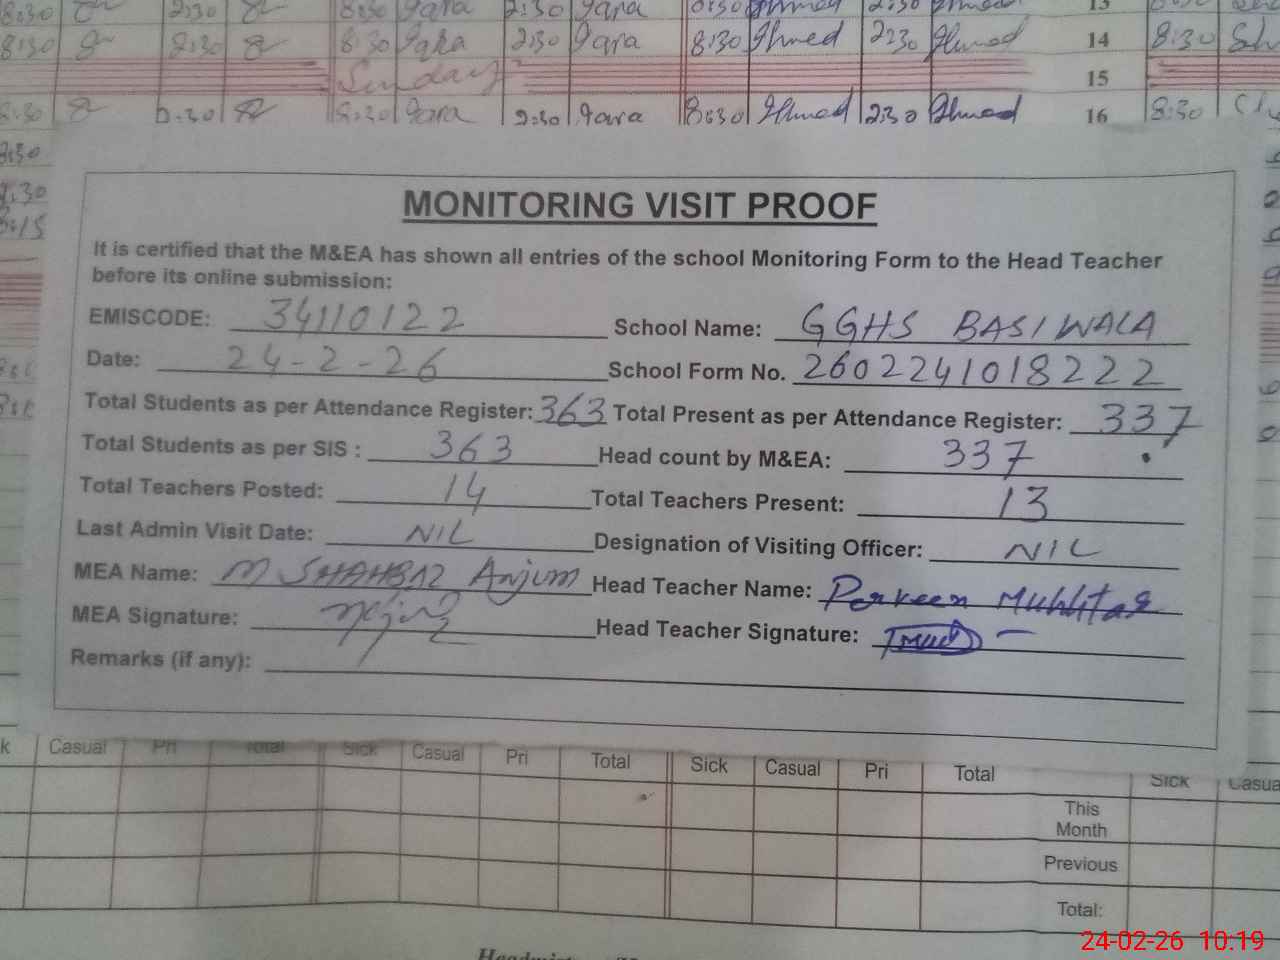 8:30 2:30 8:30 Iqara 2:30 Iqara 8:30 Ahmed 2:30 Ahmed 13
8:30 8:30 8:30 Iqara 2:30 Iqara 8:30 Ahmed 2:30 Ahmed 14 8:30
Sunday 15
8:30 2:30 8:30 Iqara 2:30 Iqara 8:30 Ahmed 2:30 Ahmed 16 8:30
MONITORING VISIT PROOF
It is certified that the M&EA has shown all entries of the school Monitoring Form to the Head Teacher
before its online submission:
EMISCODE: 34110122 School Name: GGHS BASIWALA
Date: 24-2-26 School Form No. 2602241018222
Total Students as per Attendance Register: 363 Total Present as per Attendance Register: 337
Total Students as per SIS : 363 Head count by M&EA: 337
Total Teachers Posted: 14 Total Teachers Present: 13
Last Admin Visit Date: NIL Designation of Visiting Officer: NIL
MEA Name: M SHAHBAZ Anjum Head Teacher Name: Parveen Mukhtar
MEA Signature: Head Teacher Signature:
Remarks (if any):
k Casual Pri Total Sick Casual Pri Total Sick Casual Pri Total Sick Casua
This
Month
Previous
Total:
24-02-26 10:19